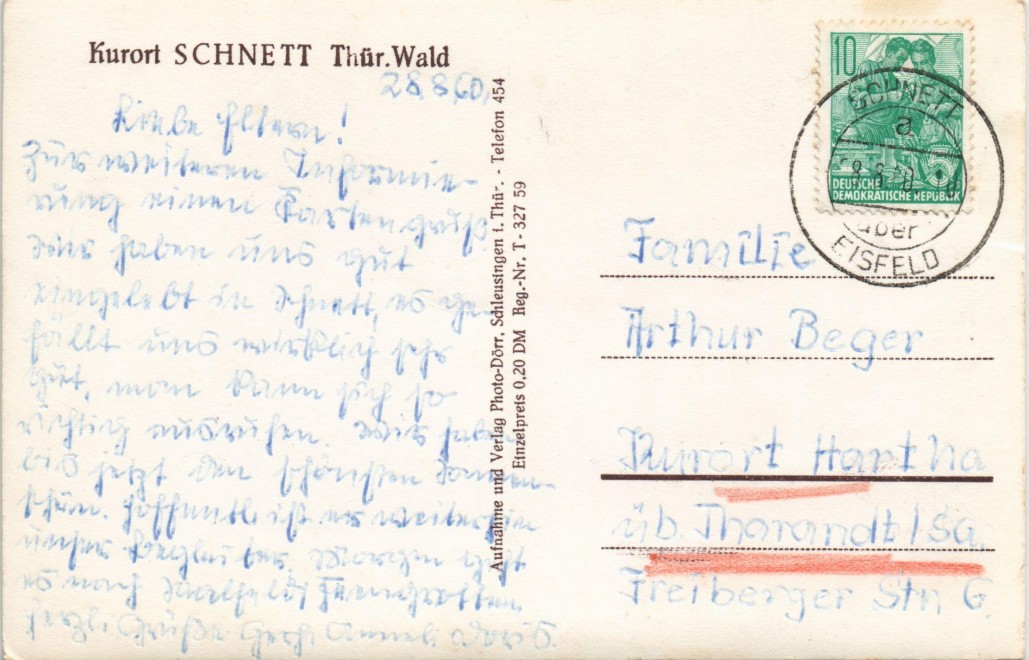 Kurort SCHNETT Thür.Wald
28.8.60.
Liebe Eltern!
Zur weiteren Informie-
rung einen Kartengruß
Wir haben uns gut
eingelebt in Schnett, es ge-
fällt uns wirklich sehr
gut, man kann sich so
richtig ausruhen. Wir haben
bis jetzt den schönsten Sonnen-
schein. Hoffentl. ist er weiterhin
unser Begleiter. Morgen geht
es nach Saalfeld Feengrotten
Herzl. Grüße
Aufnahme und Verlag Photo-Dörr, Schleusingen i. Thür. - Telefon 454
Einzelpreis 0,20 DM Reg.-Nr. T - 327 59
10
5
DEUTSCHE
DEMOKRATISCHE REPUBLIK
SCHNETT
a
über
EISFELD
Familie
Arthur Beger
Kurort Hartha
üb. Tharandt/Sa.
Freiberger Str. 6